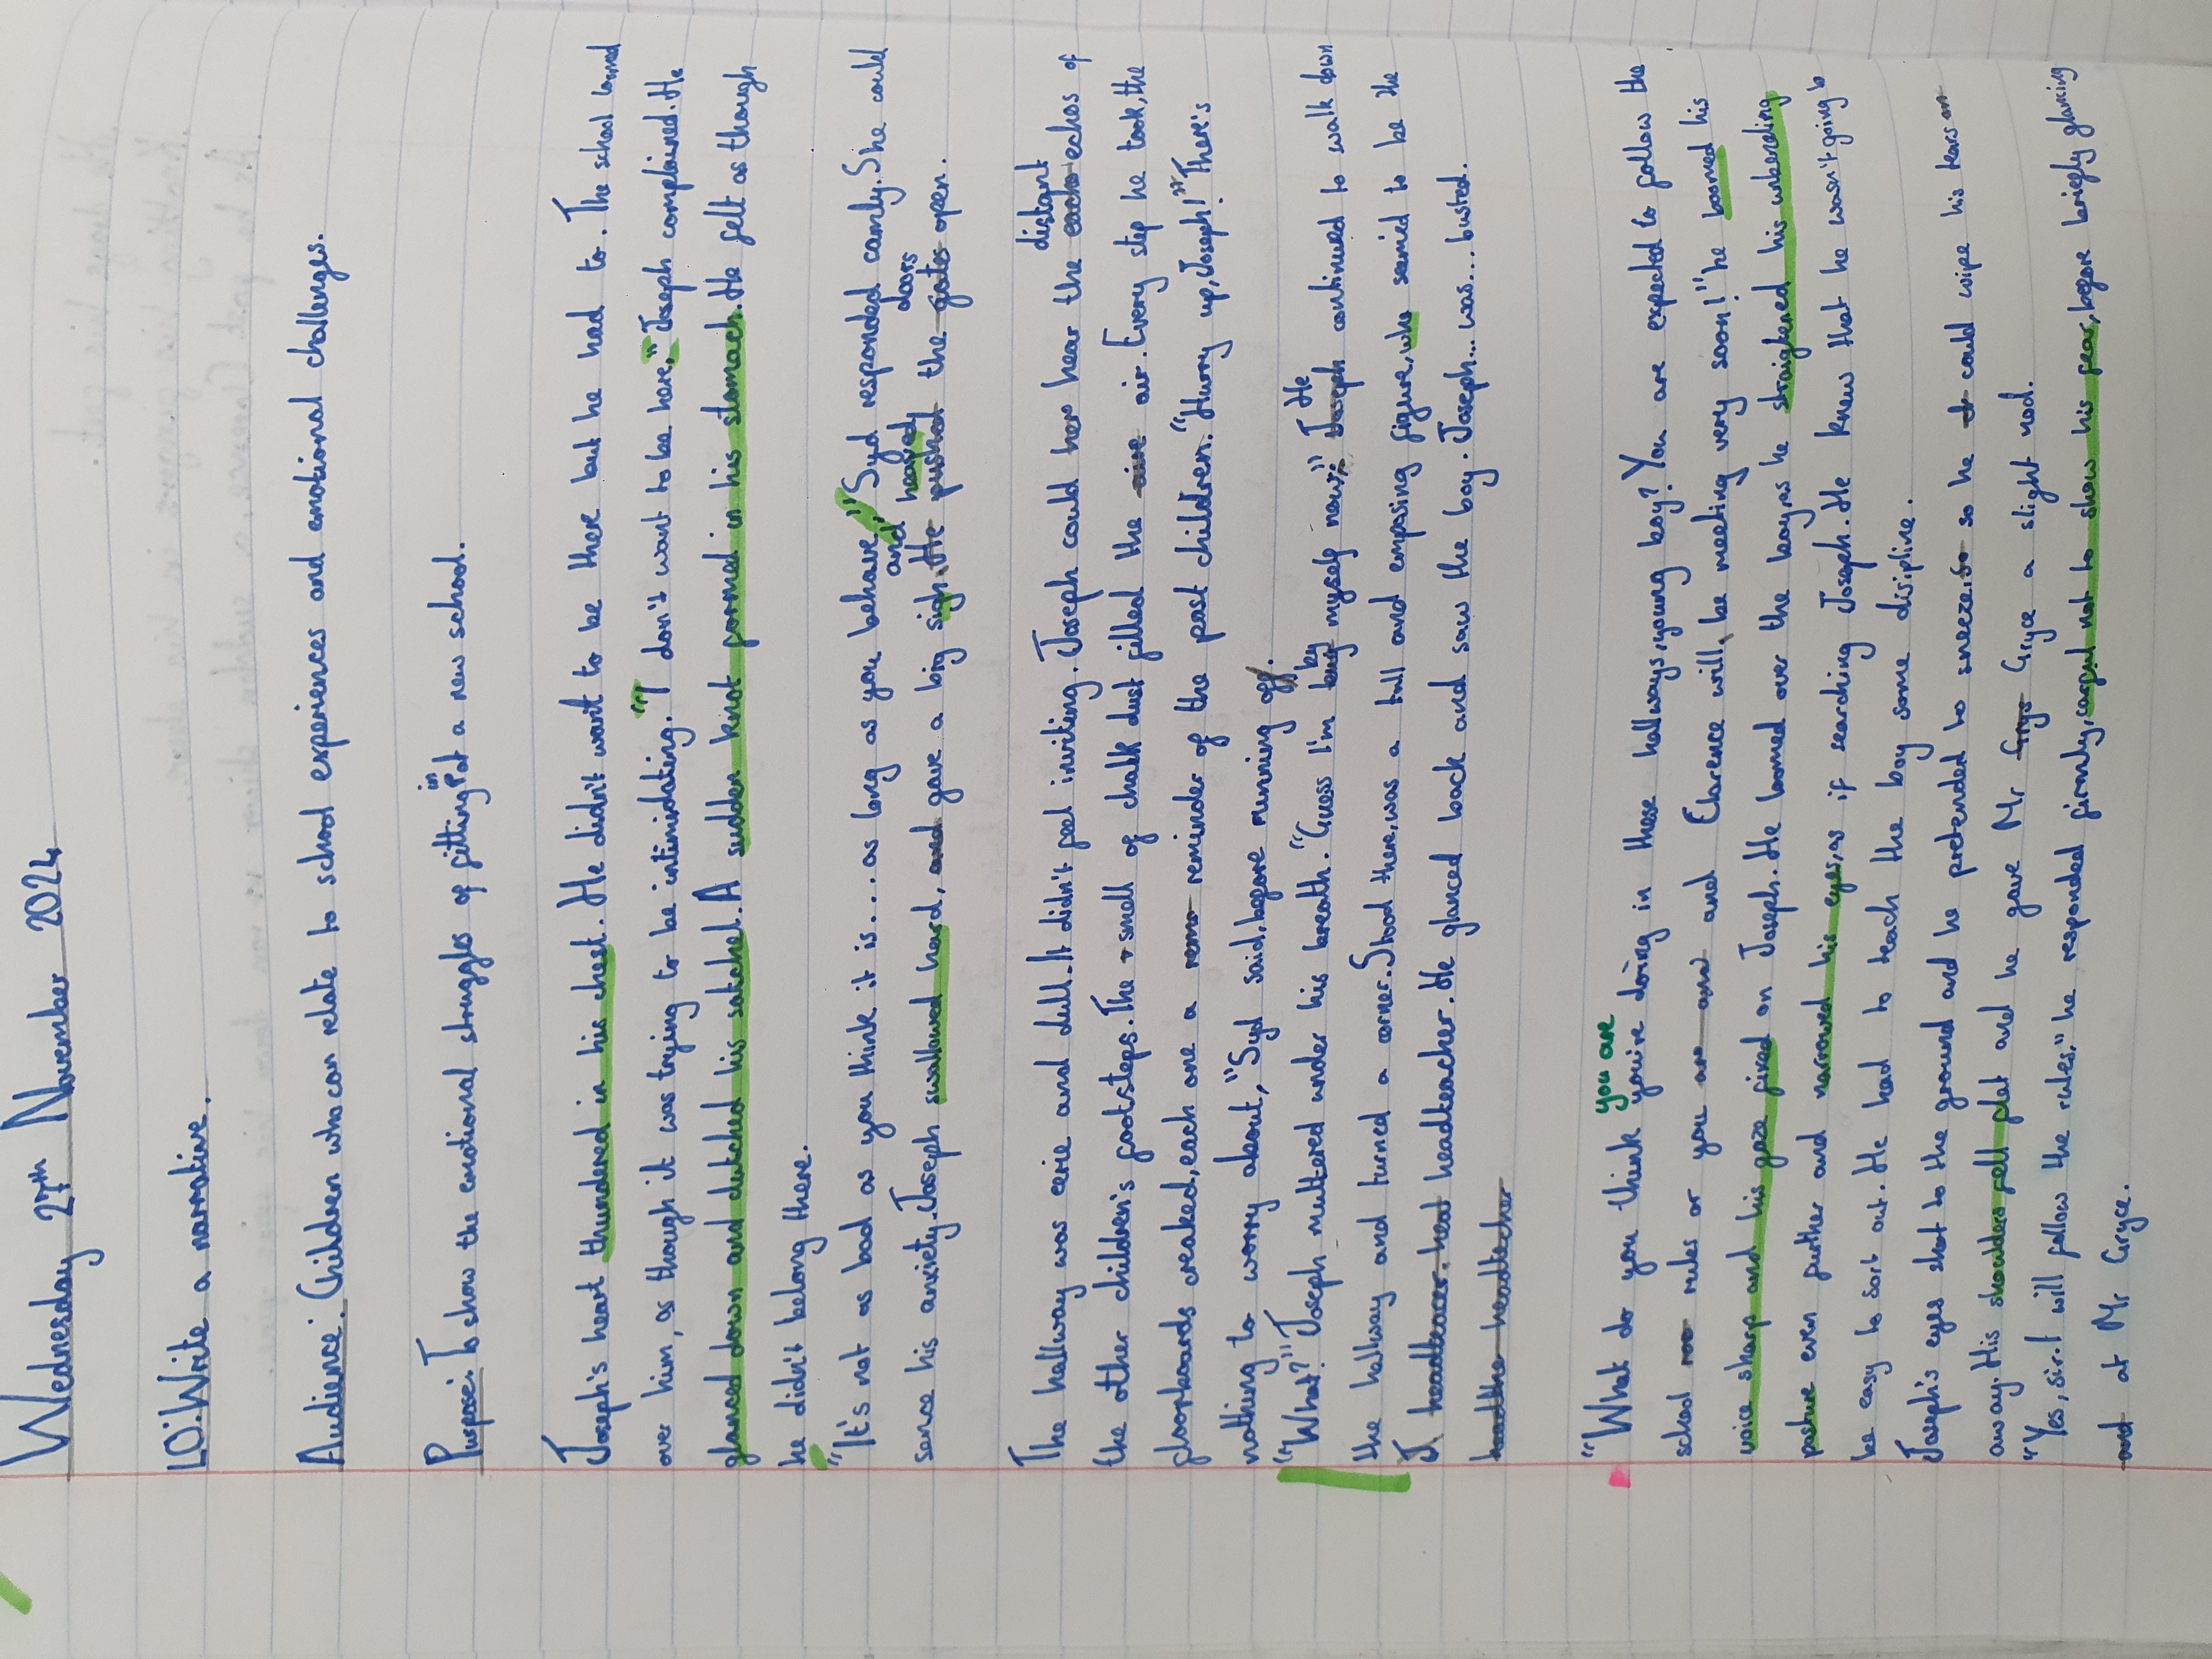 Wednesday 27th November 2024
LO: Write a narrative.
Audience: Children who can relate to school experiences and emotional challenges.
Purpose: To show the emotional struggles of fitting in at a new school.
Joseph's heart thundered in his chest. He didn't want to be there but he had to. The school loomed
over him, as though it was trying to be intimidating. "I don't want to be here," Joseph complained. He
glanced down and clutched his satchel. A sudden knot formed in his stomach. He felt as though
he didn't belong there.
"It's not as bad as you think it is.... as long as you behave," Syd responded camly. She could
sence his anxiety. Joseph swallowed hard, gave a big sigh and heaved the doors open.
The hallway was eerie and dull. It didn't feel inviting. Joseph could hear the distant echos of
the other children's footsteps. The smell of chalk dust filled the air. Every step he took, the
floorboards creaked, each one a reminder of the past children. "Hurry up, Joseph!" There's
nothing to worry about," Syd said, before running off.
"What?" Joseph muttered under his breath. "Guess I'm by myself now." He continued to walk down
the hallway and turned a corner. Stood there, was a tall and emposing figure, who seemed to be the
headteacher. He glanced back and saw the boy. Joseph... was... busted.
"What do you think you are doing in these hallways, young boy? You are expected to follow the
school rules or you and Clarence will be meeting very soon!" he boomed his
voice sharp and his gaze fixed on Joseph. He loomed over the boy, as he straightened his unbending
posture even further and narrowed his eyes, as if searching Joseph. He knew that he wasn't going to
be easy to sort out. He had to teach the boy some disipline.
Joseph's eyes shot to the ground and he pretended to sneeze, so he could wipe his tears
away. His shoulders fell flat and he gave Mr Gryce a slight nod.
"Yes, sir. I will follow the rules." he responded firmly, careful not to show his fear, before briefly glancing
at Mr Gryce.